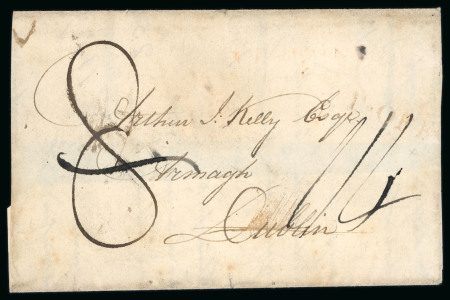 8
Arthur J: Kelly Esqr
Armagh
Dublin